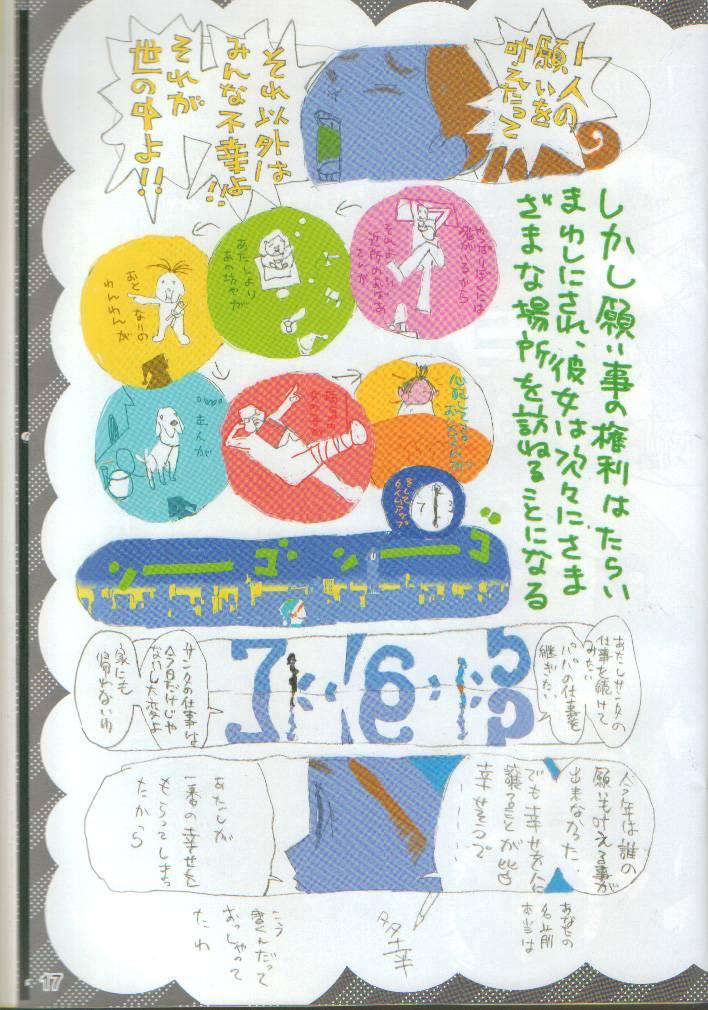 一人の
願いを
叶えたって
それ以外は
みんな不幸よ!!
それが
世の中よ!!
しかし願い事の権利はたらい
まわしにされ、彼女は次々にさま
ざまな場所を訪ねることになる
やっぱりぼくには
近所のおばあ
あたしより
あの坊やが
おとなりの
わんわんが
主人が
心配してる
タイムアップ
7
3
ゴーン
ゴーン
あたしサンタの
仕事を続けて
みたい
パパの仕事を
継ぎたい
5
6
7
サンタの仕事は
今日だけじゃ
ないし大変よ
家にも
帰れないわ
今年は誰の
願いも叶える事が
出来なかった
でも幸せを人に
譲ることが皆
幸せそうで
……
あたしが
一番の幸せを
もらってしまっ
たから
あなたの
名前
本当は
多幸
って
おっしゃって
たわ
17